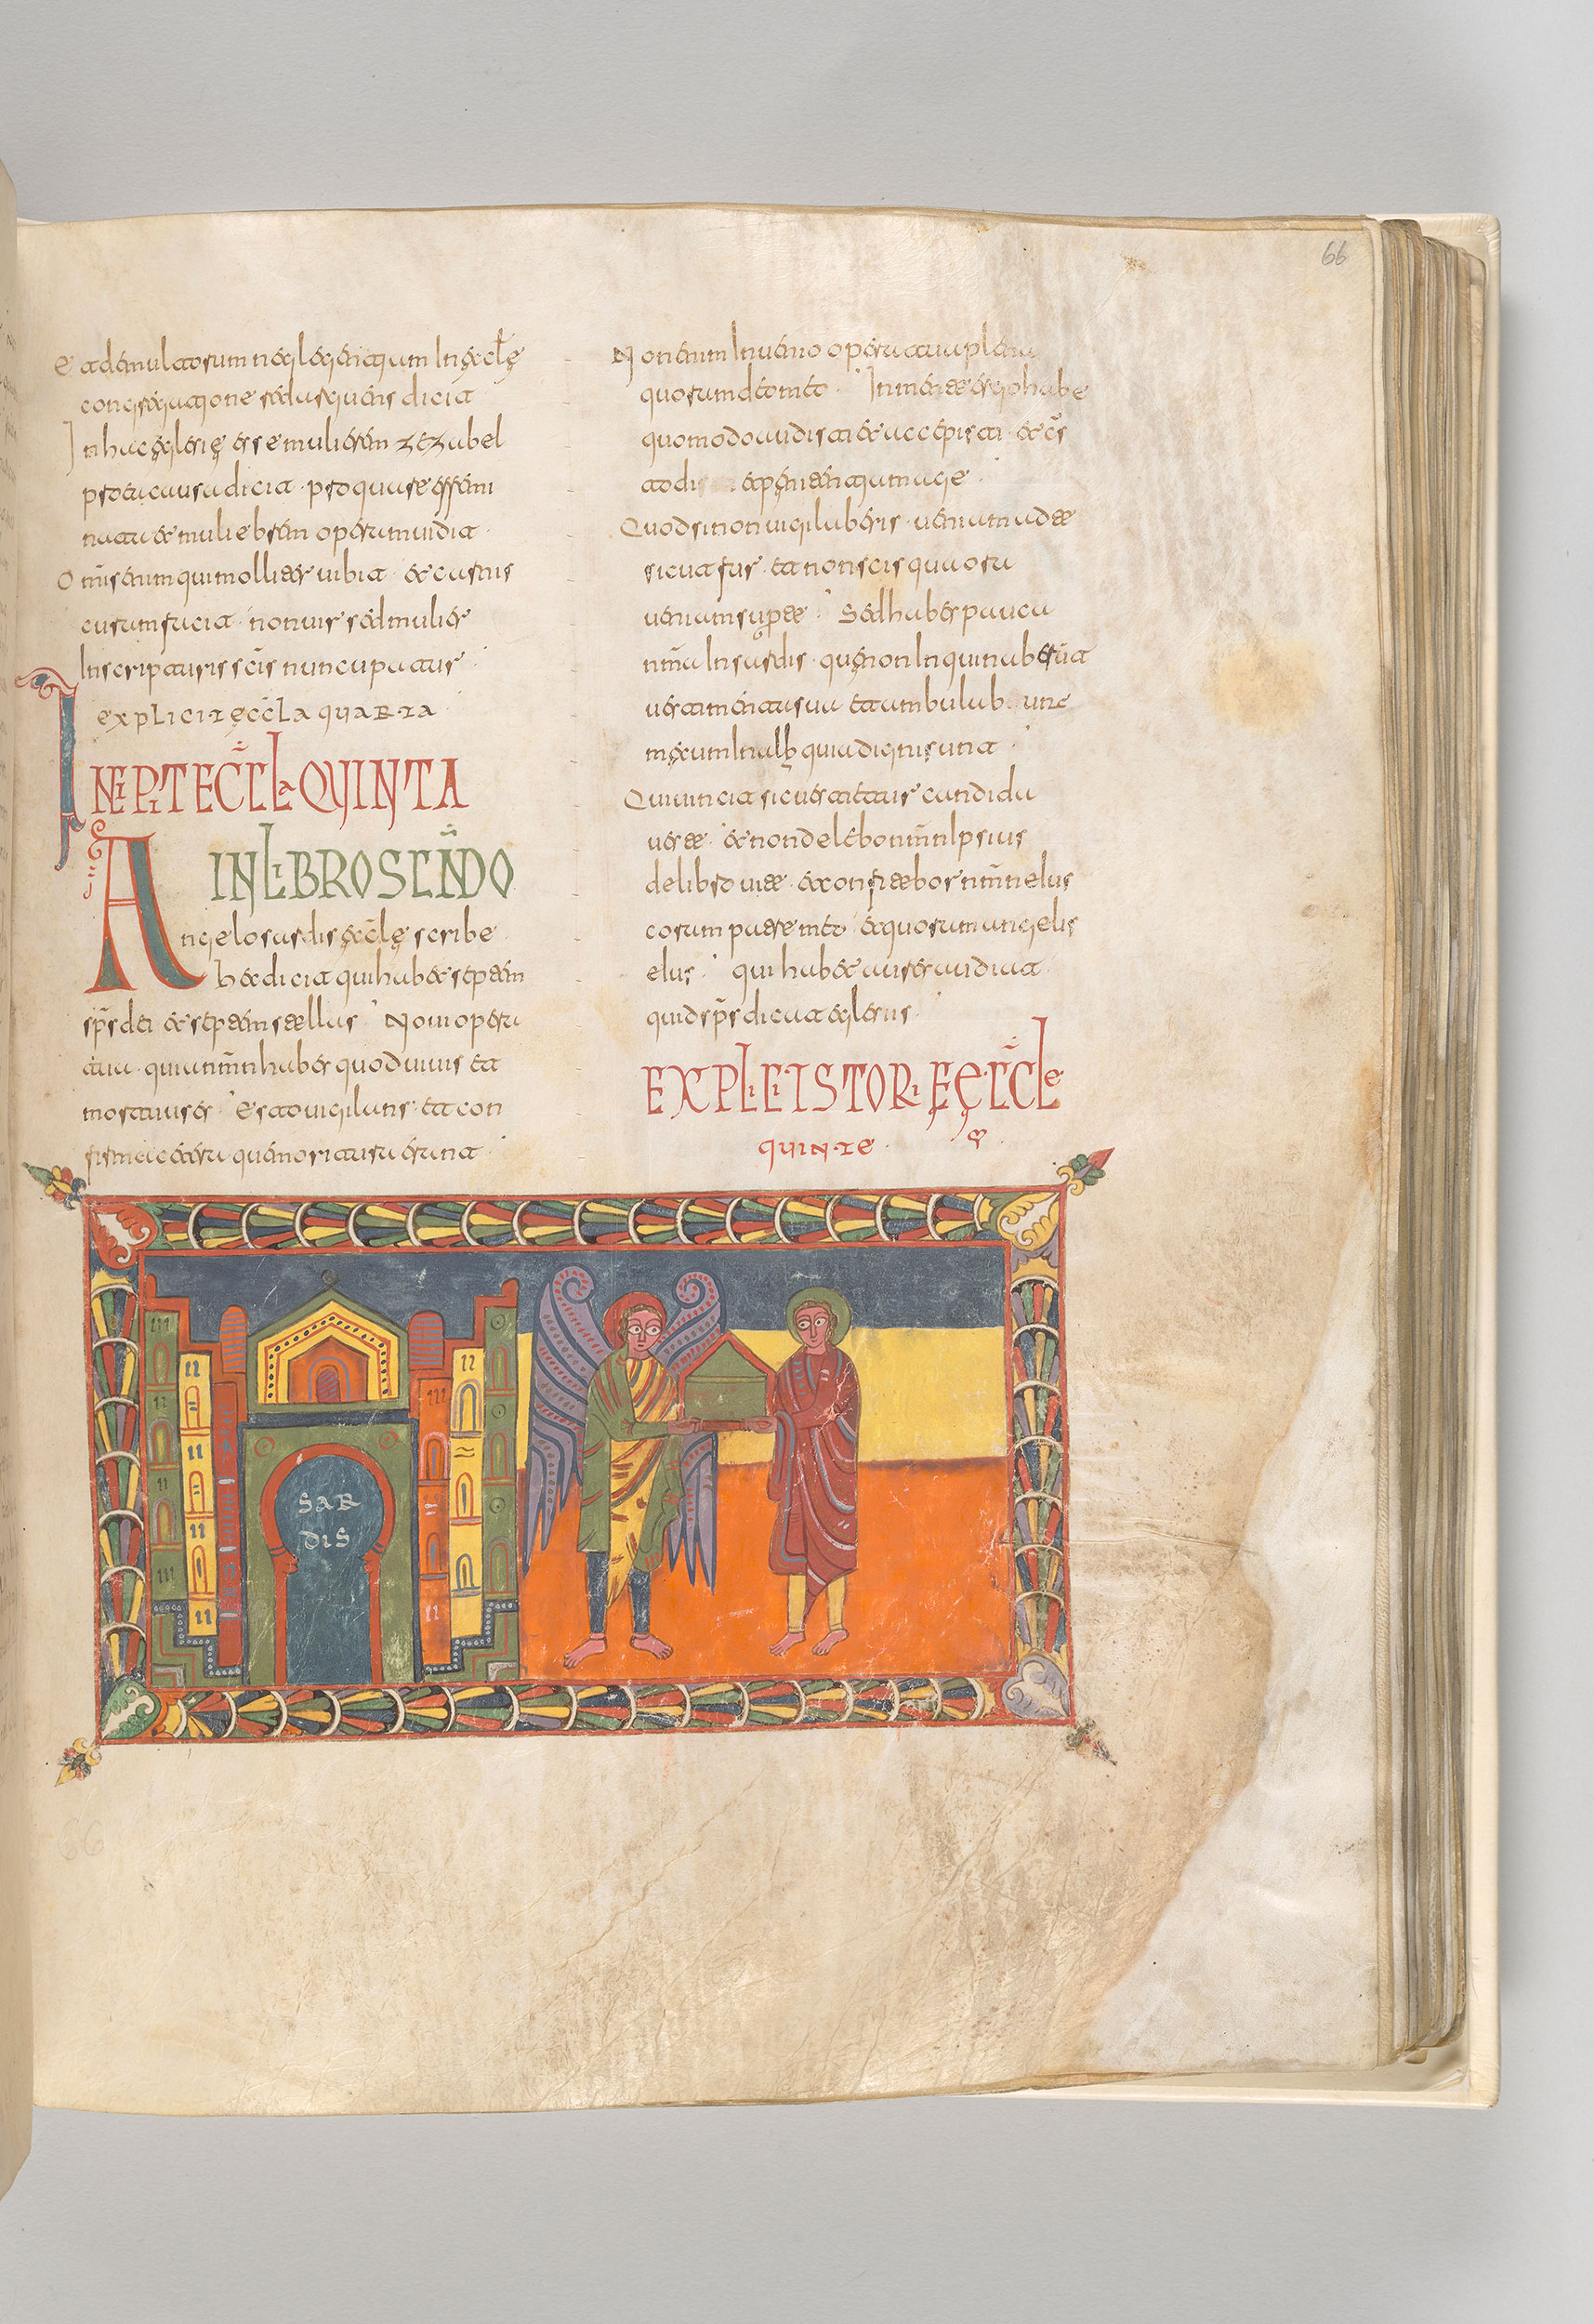 66
ademulatorum neglegentium In ęcclę
congregatione dicit
In hac eglesię esse mulierem zezabel
causa dicit · pro qua se effemi
nari & muliebrem opera
Omnis enim qui molliter uibit · & carnis
curam facit · non uir sed mulier
In scripturis scis nuncupatur
explicit ęccla quarta
INCIPIT ECCLA QUINTA
IN LIBRO SCNDO
Angelo sardis ęcclę scribe
hec dicit qui habet septem
sprs dei & septem stellas · Noui opera
tua · quia nmn habes quod uiuis et
mortuus es · Esto uigilans · et con
firma cetera que moritura erant ·
Non enim Inuenio opera tua plena
quorum dto mto · In mente ergo habe
quomodo audisti & accepisti · & cs
todi penitentiam age
Quod si non uigilaberis · ueniam ad te
sicut fur · et non scis qua ora
ueniam super te · Sed habes pauca
nmna In sardis · quę non Inquinaberunt
uestimenta sua et ambulabunt
męcum In alb quia digni sunt
Qui uincit sic uestitur candida
ueste · & non delebo nmn Ipsius
de libro uite · & confitebor nmn eius
coram patre meo & quorum angelis
eius · qui habet aures audiat
quid sprs dicat eglesiis
EXPLICIT STORIE ECCLE
QUINTE
SAR
DIS
66